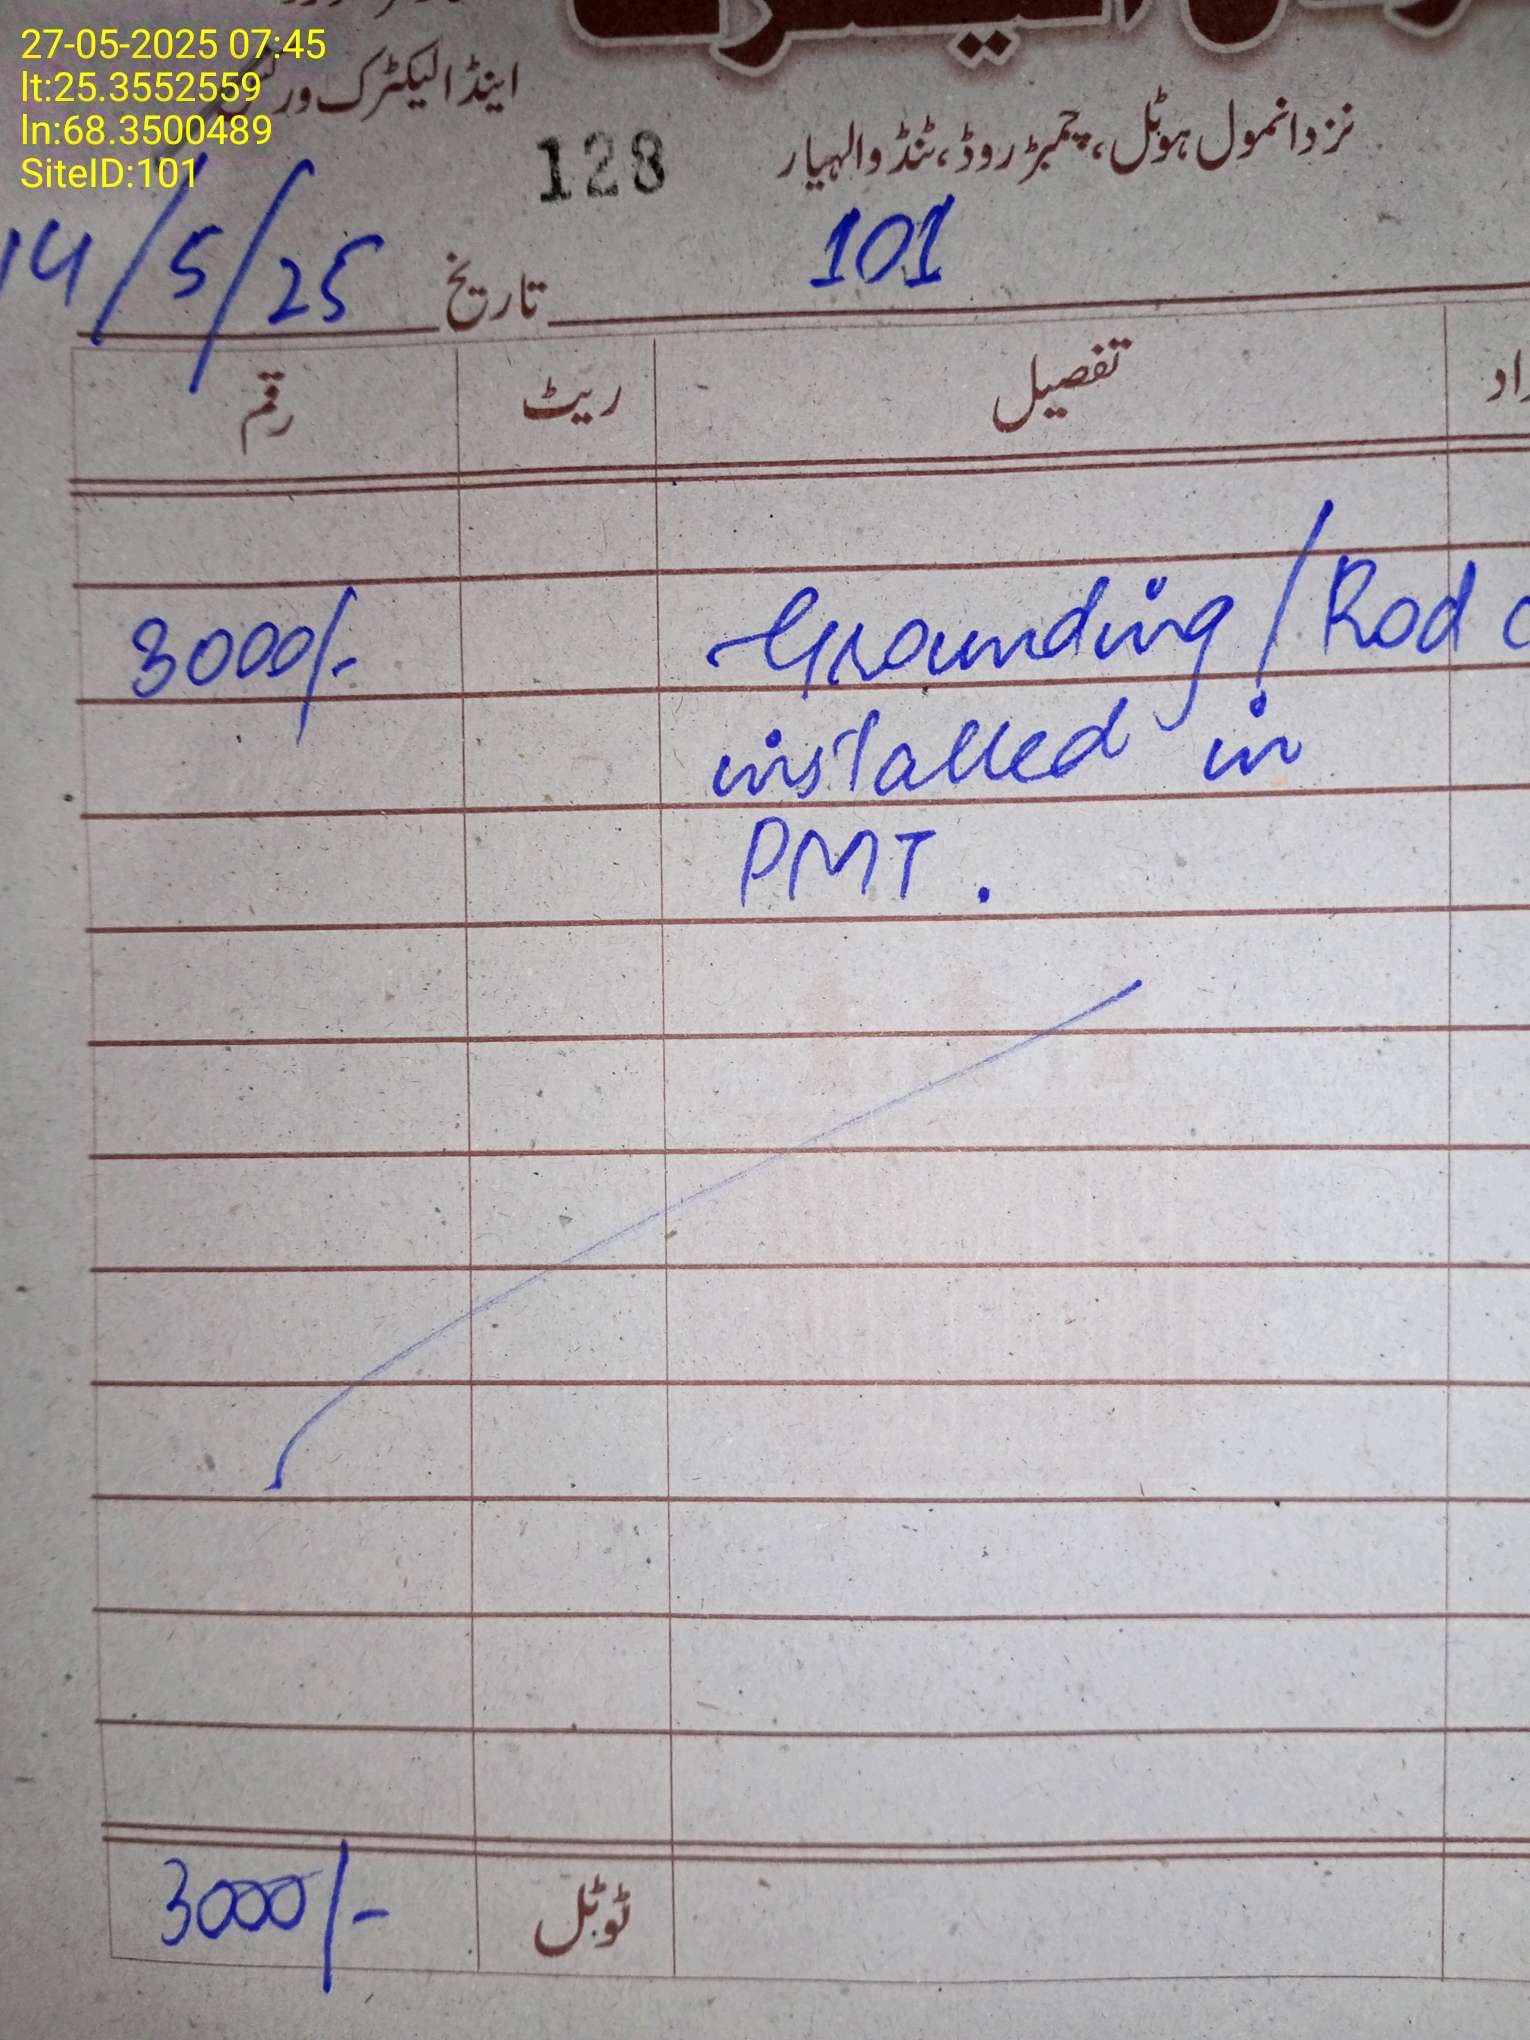 27-05-2025 07:45
lt:25.3552559
ln:68.3500489
SiteID:101
اینڈ الیکٹرک ورکس
نزد انمول ہوٹل، چمبڑ روڈ، ٹنڈوالہیار
128
101
تاریخ 14/5/25
تفصیل ریٹ رقم
Grounding / Rod 3000/-
installed in
PMT.
ٹوٹل 3000/-